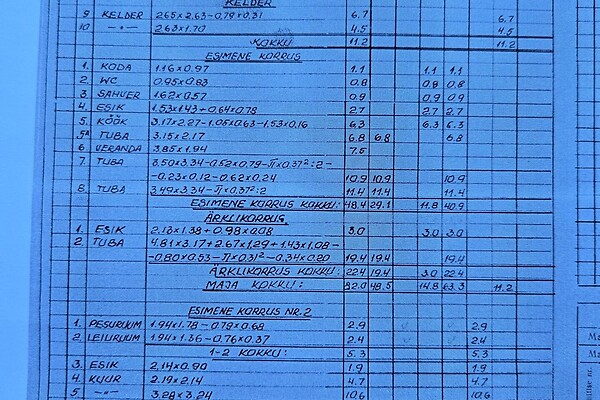 KELDER
9 KELDER 2.65×2.63-0.79×0.31 6.7 6.7
10 —"— 2.63×1.70 4.5 4.5
KOKKU 11.2 11.2
ESIMENE KORRUS
1. KODA 1.16×0.97 1.1 1.1 1.1
2. WC 0.95×0.83 0.8 0.8 0.8
3. SAHVER 1.62×0.57 0.9 0.9 0.9
4. ESIK 1.53×1.43+0.64×0.78 2.7 2.7 2.7
5. KÖÖK 3.17×2.27-1.05×0.63-1.53×0.16 6.3 6.3 6.3
5A TUBA 3.15×2.17 6.8 6.8 6.8
6. VERANDA 3.85×1.94 7.5
7. TUBA 3.50×3.34-0.52×0.79-π×0.37²:2-
-0.23×0.12-0.62×0.24 10.9 10.9 10.9
8. TUBA 3.49×3.34-π×0.37²:2 11.4 11.4 11.4
ESIMENE KORRUS KOKKU: 48.4 29.1 11.8 40.9
ÄRKLIKORRUS.
1. ESIK 2.13×1.38+0.98×0.08 3.0 3.0 3.0
2. TUBA 4.81×3.17+2.67×1.29+1.43×1.08-
-0.80×0.53-π×0.31²-0.34×0.20 19.4 19.4 19.4
ÄRKLIKORRUS KOKKU: 22.4 19.4 3.0 22.4
MAJA KOKKU: 82.0 48.5 14.8 63.3 11.2
ESIMENE KORRUS NR.2
1. PESURUUM 1.94×1.78-0.79×0.68 2.9 2.9
2. LEILIRUUM 1.94×1.36-0.76×0.37 2.4 2.4
1-2 KOKKU: 5.3 5.3
3. ESIK 2.14×0.90 1.9 1.9
4. KUUR 2.19×2.14 4.7 4.7
5. —"— 3.28×3.24 10.6 10.6